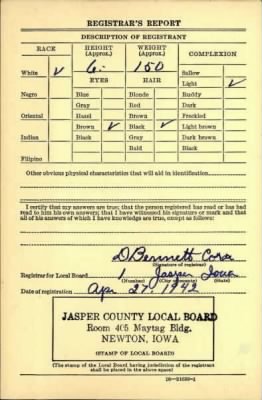 REGISTRAR'S REPORT
DESCRIPTION OF REGISTRANT
RACE HEIGHT (Approx.) WEIGHT (Approx.) COMPLEXION
White ✓ 6- 150 Sallow
EYES HAIR Light ✓
Negro Blue Blonde Ruddy
Gray Red Dark
Oriental Hazel Brown Freckled
Brown ✓ Black ✓ Light brown
Indian Black Gray Dark brown
Bald Black
Filipino
Other obvious physical characteristics that will aid in identification
I certify that my answers are true; that the person registered has read or has had
read to him his own answers; that I have witnessed his signature or mark and that
all of his answers of which I have knowledge are true, except as follows:
D Bennett
(Signature of registrar)
Registrar for Local Board 1 Jasper Iowa
(Number) (City or county) (State)
Date of registration Apr 27 1942
JASPER COUNTY LOCAL BOARD
Room 405 Maytag Bldg.
NEWTON, IOWA
(STAMP OF LOCAL BOARD)
(The stamp of the Local Board having jurisdiction of the registrant
shall be placed in the above space)